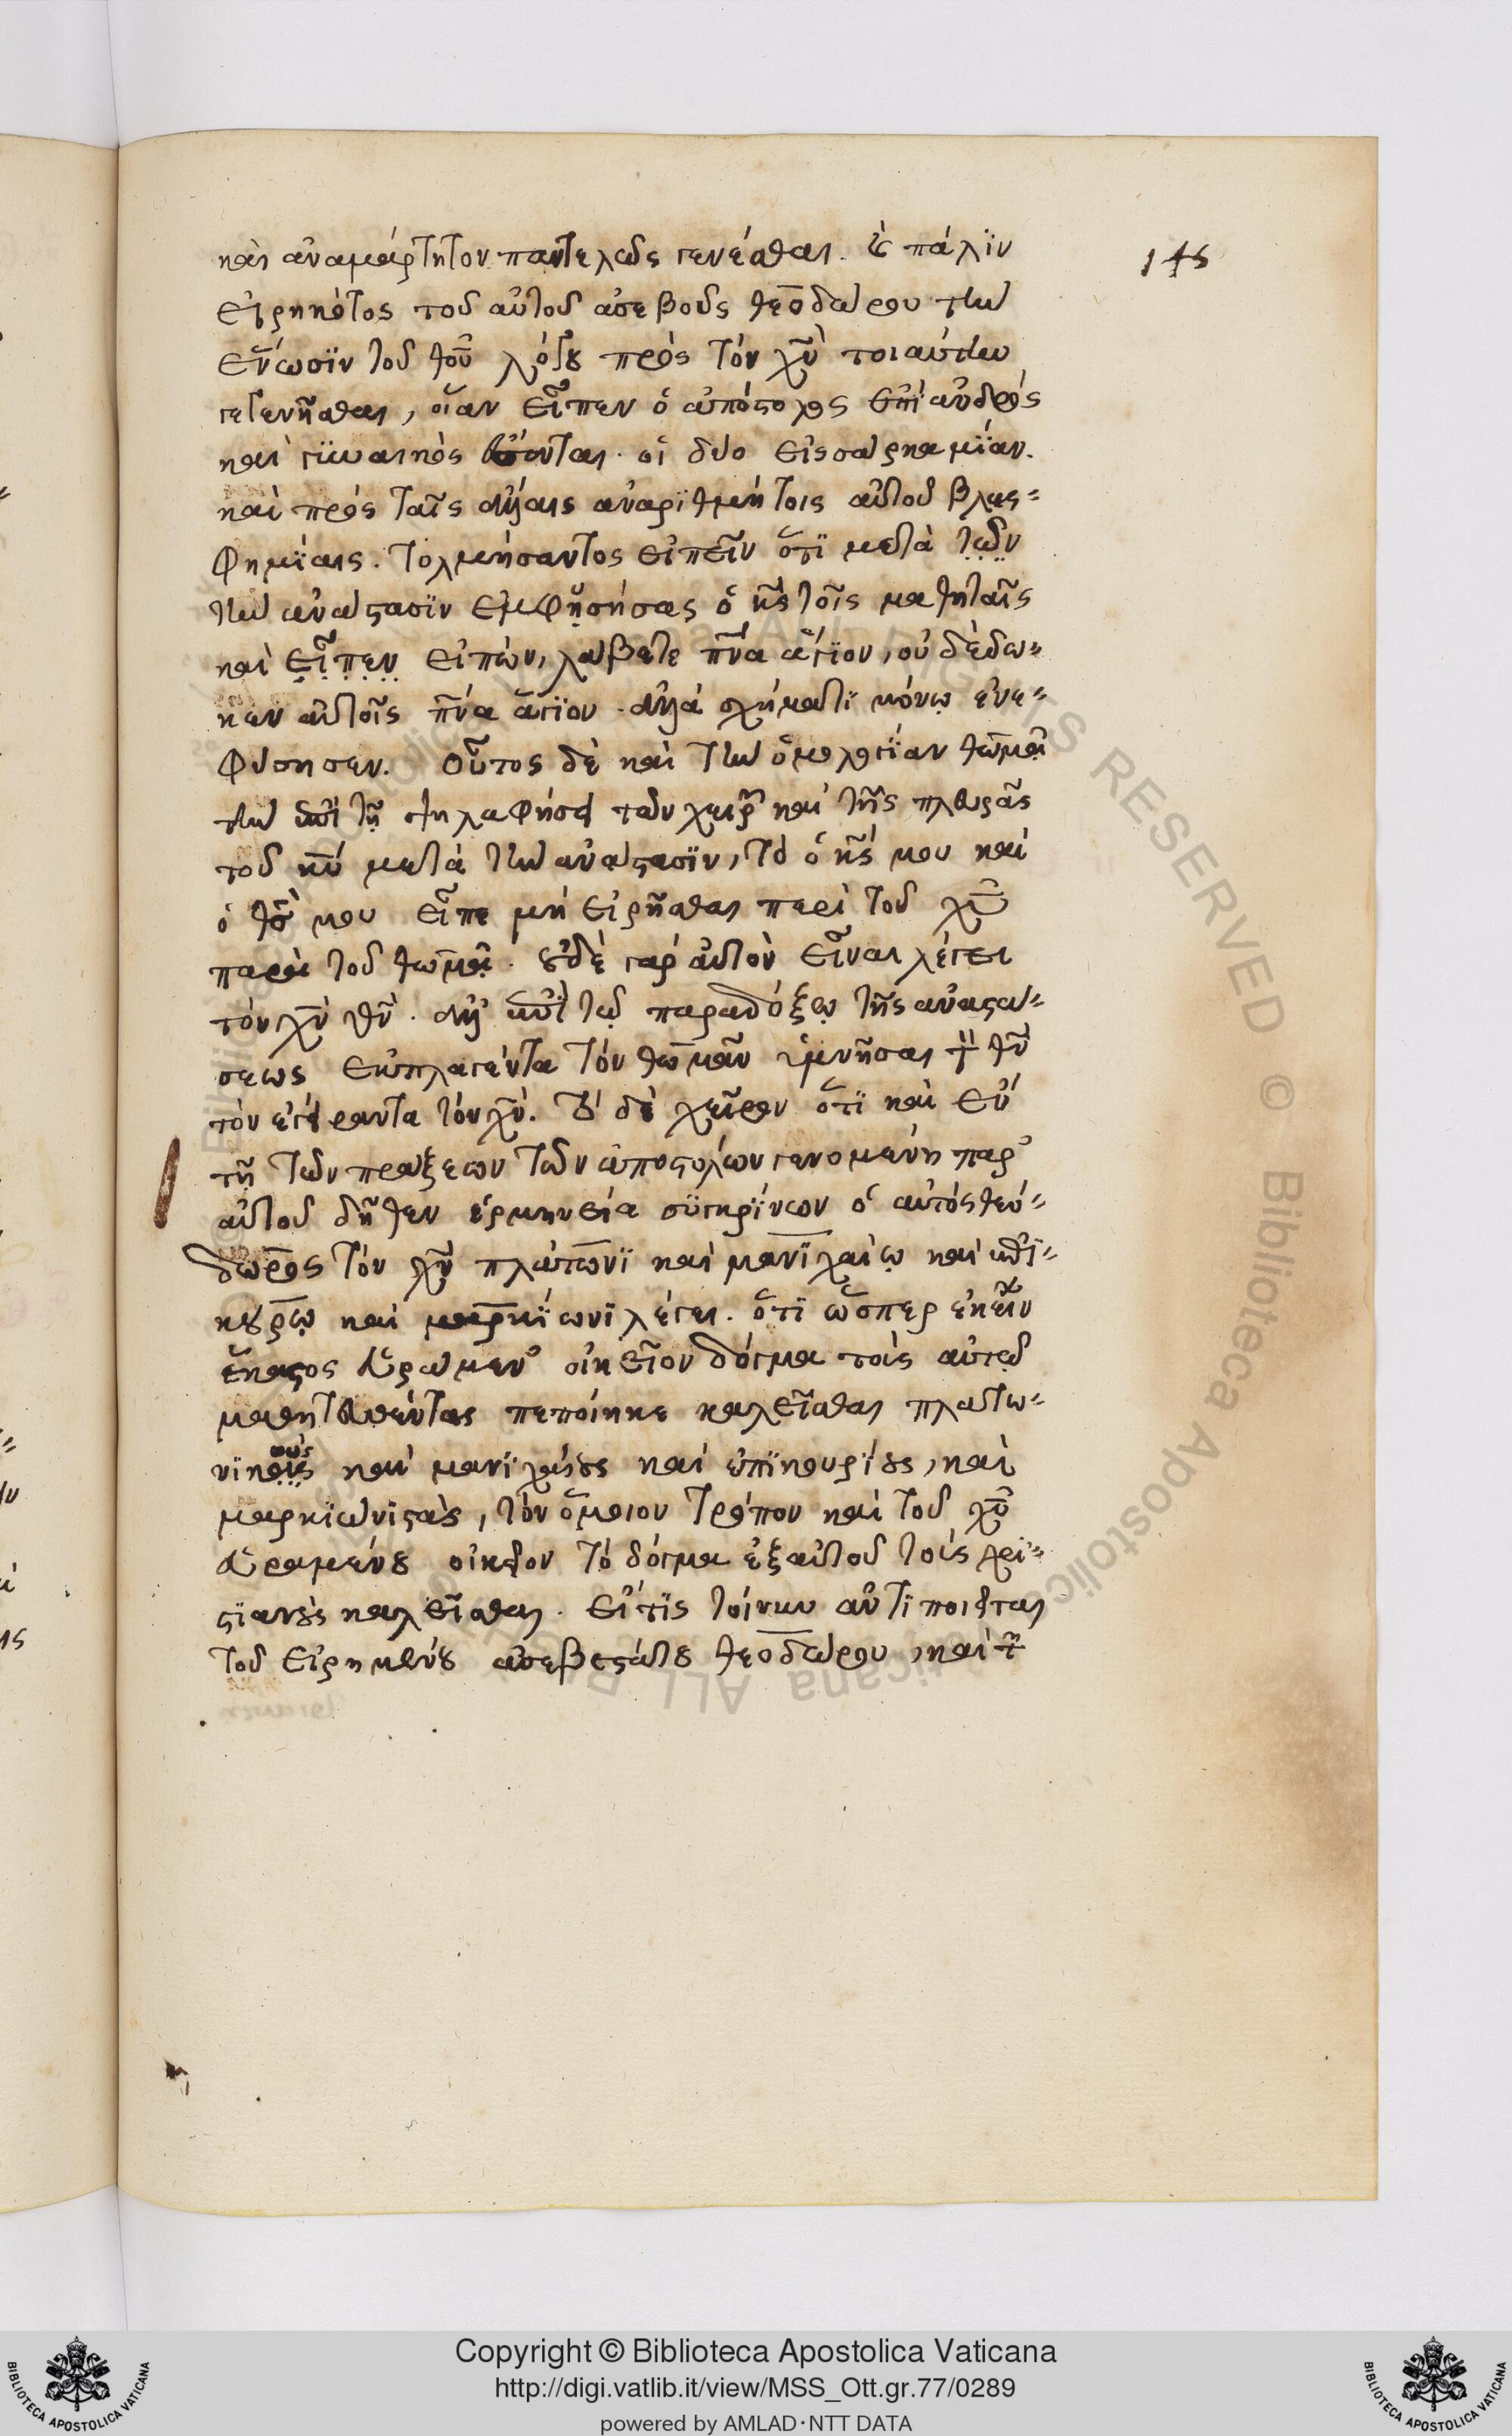 145
καὶ ἀναμάρτητον παντελῶς γενέσθαι. καὶ πάλϊν
εἰρηκότος τοῦ αὐτοῦ ἀσεβοῦς θεοδώρου τὴν
ἕνωσϊν τοῦ θοῦ λόγου πρὸς τόν χν̅ τοιαύτην
γεγενῆσθαι, οἵαν εἶπεν ὁ ἀπόστολος ἐπὶ ἀνδρός
καὶ γυναικός ἔσονται οἱ δύο εἰς σάρκα μΐαν.
καὶ πρὸς ταῖς ἄλλαις ἀναρϊθμήτοις αὐτοῦ βλας=
φημΐαις. τολμήσαντος εἰπεῖν ὅτϊ μετὰ τῶν
τὴν ἀνάστασϊν ἐμφυσήσας ὁ κς̅ τοῖς μαθηταῖς
καὶ εἶπεν εἰπών, λάβετε πν̅α ἅγϊον, οὐ δέδω=
κεν αὐτοῖς πν̅α ἅγϊον. ἀλλὰ σχήματϊ μόνῳ ἐνε=
φύσησεν. οὗτος δὲ καὶ τὴν ὁμολογΐαν θωμᾶ
τὴν ἐπὶ τῇ ψηλαφήσει τῶν χειρῶν καὶ τῆς πλευρᾶς
τοῦ κυ̅ μετὰ τὴν ἀνάστασϊν, τὸ ὁ κς̅ μου καὶ
ὁ θς̅ μου εἶπε μὴ εἰρῆσθαι περὶ τοῦ χυ̅
παρὰ τοῦ θωμᾶ. οὐδὲ γὰρ αὐτὸν εἶναι λέγει
τὸν χν̅ θν̅. ἀλλ' ἐπὶ τῷ παραδόξῳ τῆς ἀναστά=
σεως ἐκπλαγέντα τὸν θωμᾶν ὑμνῆσαι τὸν θν̅
τὸν ἐγείραντα τὸν χν̅. τὸ δὲ χεῖρον ὅτϊ καὶ ἐν
τῇ τῶν πράξεων τῶν ἀποστόλων γενομένη παρ'
αὐτοῦ δῆθεν ἑρμηνεία συγκρΐνων ὁ αὐτὸς θεό=
δωρος τὸν χν̅ πλάτωνϊ καὶ μανϊχαίῳ καὶ ἐπϊ=
κούρῳ καὶ μαρκΐωνϊ λέγει. ὅτϊ ὥσπερ ἐκείνων
ἕκαστος εὑράμενος οἰκεῖον δόγμα τοὺς αὐτῷ
μαθητευθέντας πεποίηκε καλεῖσθαι πλατω=
νϊκοὺς καὶ μανϊχαίους καὶ ἐπϊκουρΐους, καὶ
μαρκϊωνιστάς, τὸν ὅμοιον τρόπον καὶ τοῦ χυ̅
εὑραμένου οἰκεῖον τὸ δόγμα ἐξ αὐτοῦ τοὺς χρϊ=
στϊανοὺς καλεῖσθαι. εἴ τϊς τοίνυν ἀντϊποιεῖται
τοῦ εἰρημένου ἀσεβεστάτου θεοδώρου, καὶ τῶν